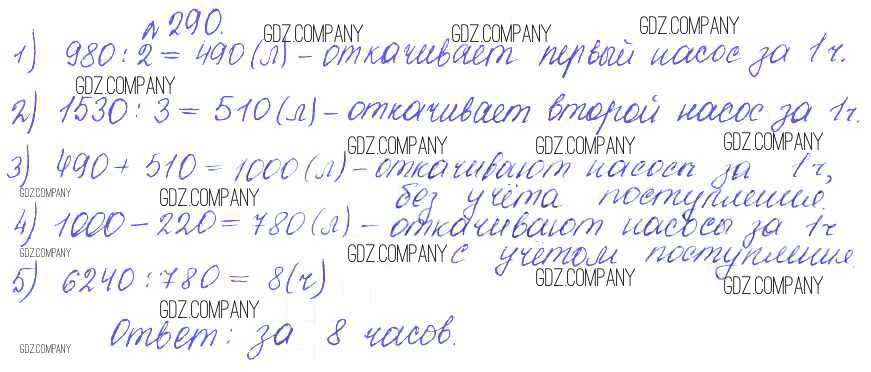 №290. GDZ.COMPANY GDZ.COMPANY GDZ.COMPANY
1) 980:2 = 490 (л) – откачивает первый насос за 1ч.
GDZ.COMPANY
2) 1530:3 = 510 (л) – откачивает второй насос за 1ч.
GDZ.COMPANY GDZ.COMPANY GDZ.COMPANY
3) 490 + 510 = 1000 (л) – откачивают насосы за 1ч,
GDZ.COMPANY GDZ.COMPANY без учёта поступления.
4) 1000 – 220 = 780 (л) – откачивают насосы за 1ч
GDZ.COMPANY GDZ.COMPANY с учётом поступления.
5) 6240:780 = 8 (ч) GDZ.COMPANY GDZ.COMPANY
GDZ.COMPANY
Ответ: за 8 часов.
GDZ.COMPANY